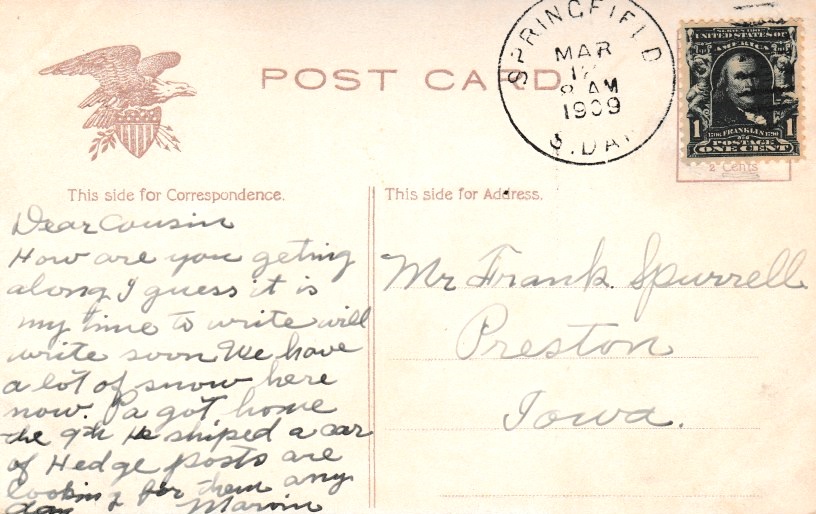 POST CARD
SPRINGFIELD
MAR
8 AM
1909
S. DAK
SERIES 1902
UNITED STATES OF
AMERICA
1 1
FRANKLIN
POSTAGE
ONE CENT
2 Cents
This side for Correspondence.
This side for Address.
Dear Cousin
How are you geting
along I guess it is
my time to write will
write soon We have
a lot of snow here
now. Pa got home
the 9th He shiped a car
of Hedge posts are
looking for them any
day Marvin
Mr Frank Spurrell
Preston
Iowa.